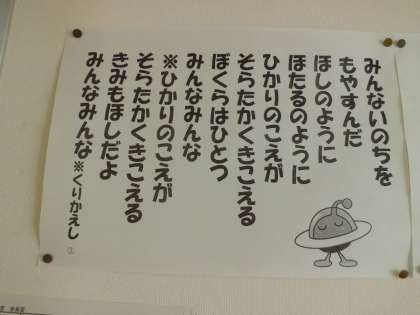 みんないのちを
もやすんだ
ほしのように
ほたるのように
ひかりのこえが
そらたかくきこえる
ぼくらはひとつ
みんなみんな
※ひかりのこえが
そらたかくきこえる
きみもほしだよ
みんなみんな※くりかえし